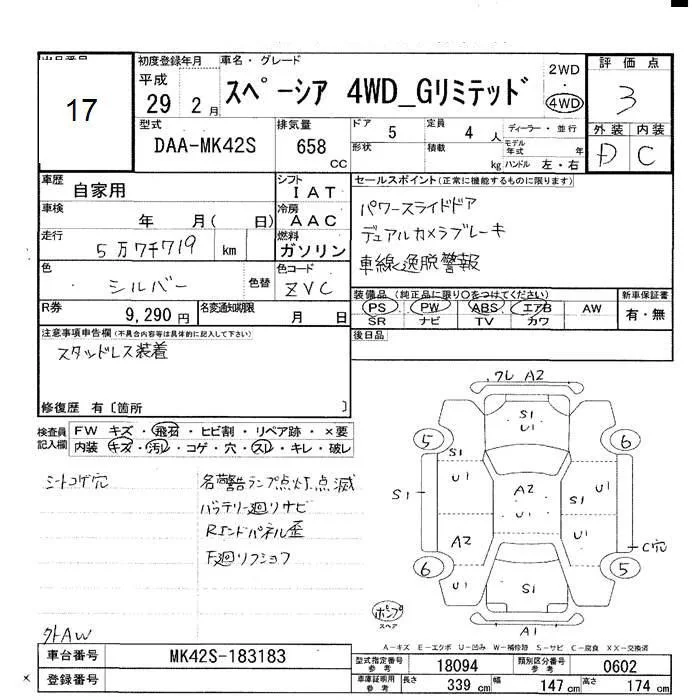 17
初度登録年月
平成
29 2 月
車名・グレード
スペーシア 4WD_Gリミテッド
2WD
・
4WD
評価点
3
外装 内装
D C
型式
DAA-MK42S
排気量
658
CC
ドア
5
形状
定員
4 人
積載
kg
ディーラー・並行
モデル年式 年
ハンドル 左・右
車歴
自家用
シフト
I A T
車検
年 月( 日)
冷房
A A C
走行
5万7千719 km
燃料
ガソリン
色
シルバー
色替
色コード
ZVC
R券
9,290 円
名変通知期限
月 日
セールスポイント(正常に機能するものに限ります)
パワースライドドア
デュアルカメラブレーキ
車線逸脱警報
装備品(純正品に限り○をつけてください)
PS PW ABS エアB AW
SR ナビ TV カワ
新車保証書
有・無
後日品
注意事項申告欄(不具合内容等は具体的に記入して下さい)
スタッドレス装着
修復歴 有〔箇所 〕
検査員
記入欄
FW キズ・飛石・ヒビ割・リペア跡・×要
内装 キズ・汚レ・コゲ・穴・スレ・キレ・破レ
シートコゲ穴
各警告ランプ点灯点滅
バッテリー廻リサビ
Rエンドパネル歪
F廻リフショク
外AW
ワレ A2
S1
U1
5
6
S1
U1
U1
S1
A2
S1
U1
A2
U1
C穴
6
5
U1
S1
U1
ポンプ
スペア
A1
A-キズ E-エクボ U-凹み W-補修跡 S-サビ C-腐食 XX-交換済
車台番号
MK42S-183183
登録番号
×
型式指定番号
参考
18094
類別区分番号
参考
0602
車庫証明用
参考
長さ 339 cm 幅 147 cm 高さ 174 cm